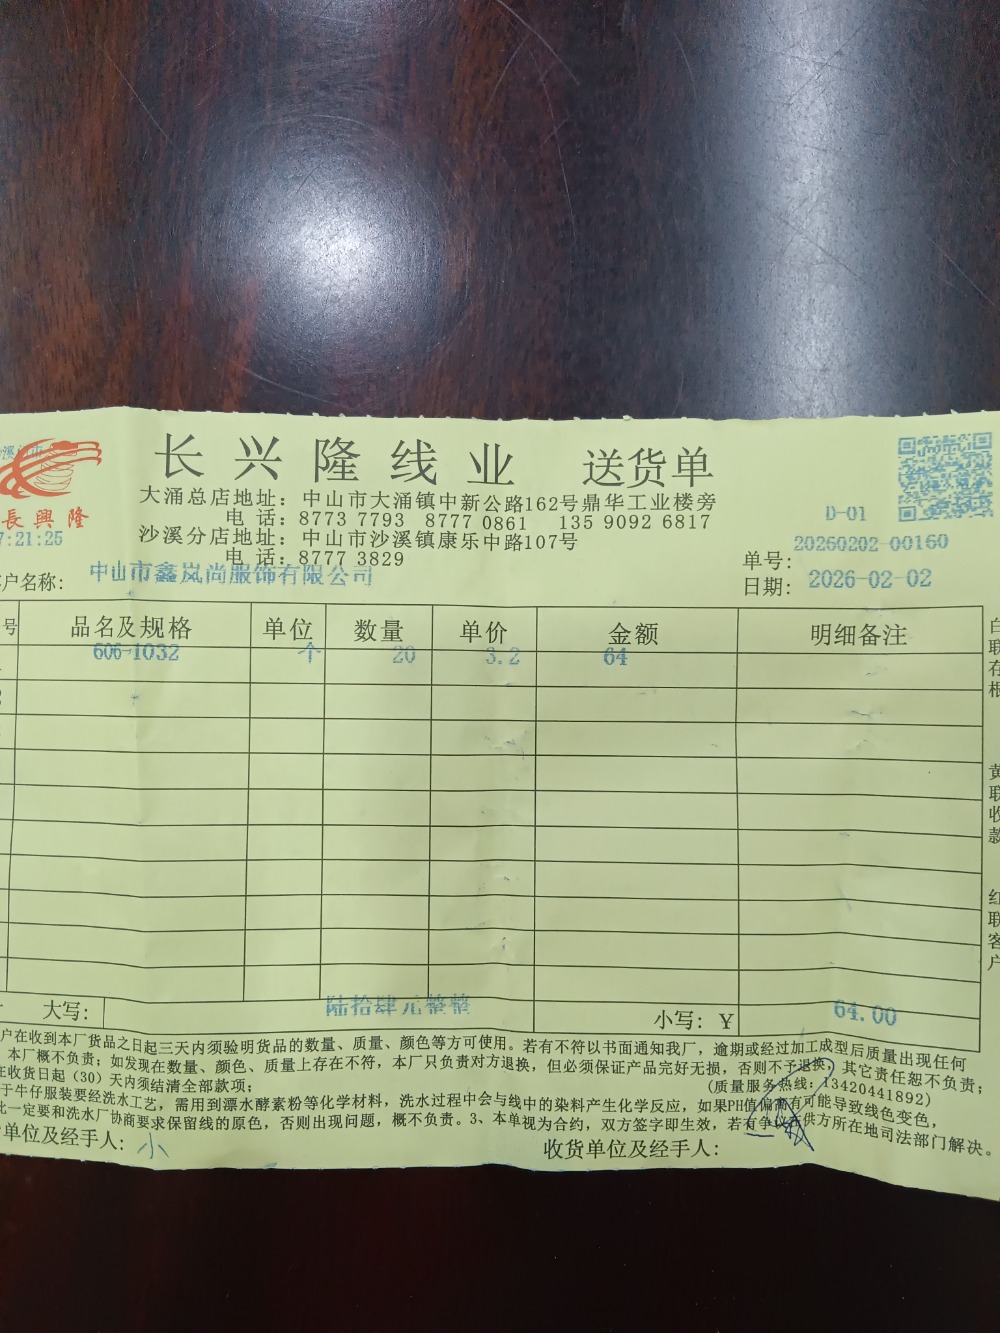 长兴隆线业 送货单
長興隆
大涌总店地址：中山市大涌镇中新公路162号鼎华工业楼旁
电 话：8773 7793 8777 0861 135 9092 6817
沙溪分店地址：中山市沙溪镇康乐中路107号
电 话：8777 3829
7:21:25
D-01
单号：20260202-00160
日期：2026-02-02
户名称：中山市鑫岚尚服饰有限公司
号 品名及规格 单位 数量 单价 金额 明细备注
606-1032 个 20 3.2 64
大写：陆拾肆元整整 小写：￥64.00
户在收到本厂货品之日起三天内须验明货品的数量、质量、颜色等方可使用。若有不符以书面通知我厂，逾期或经过加工成型后质量出现任何
本厂概不负责；如发现在数量、颜色、质量上存在不符，本厂只负责对方退换，但必须保证产品完好无损，否则不予退换，其它责任恕不负责；
在收货日起（30）天内须结清全部款项； (质量服务热线：13420441892)
于牛仔服装要经洗水工艺，需用到漂水酵素粉等化学材料，洗水过程中会与线中的染料产生化学反应，如果PH值偏高有可能导致线色变色，
此一定要和洗水厂协商要求保留线的原色，否则出现问题，概不负责。3、本单视为合约，双方签字即生效，若有争议在供方所在地司法部门解决。
单位及经手人：小 收货单位及经手人：
白联存根
黄联收款
红联客户